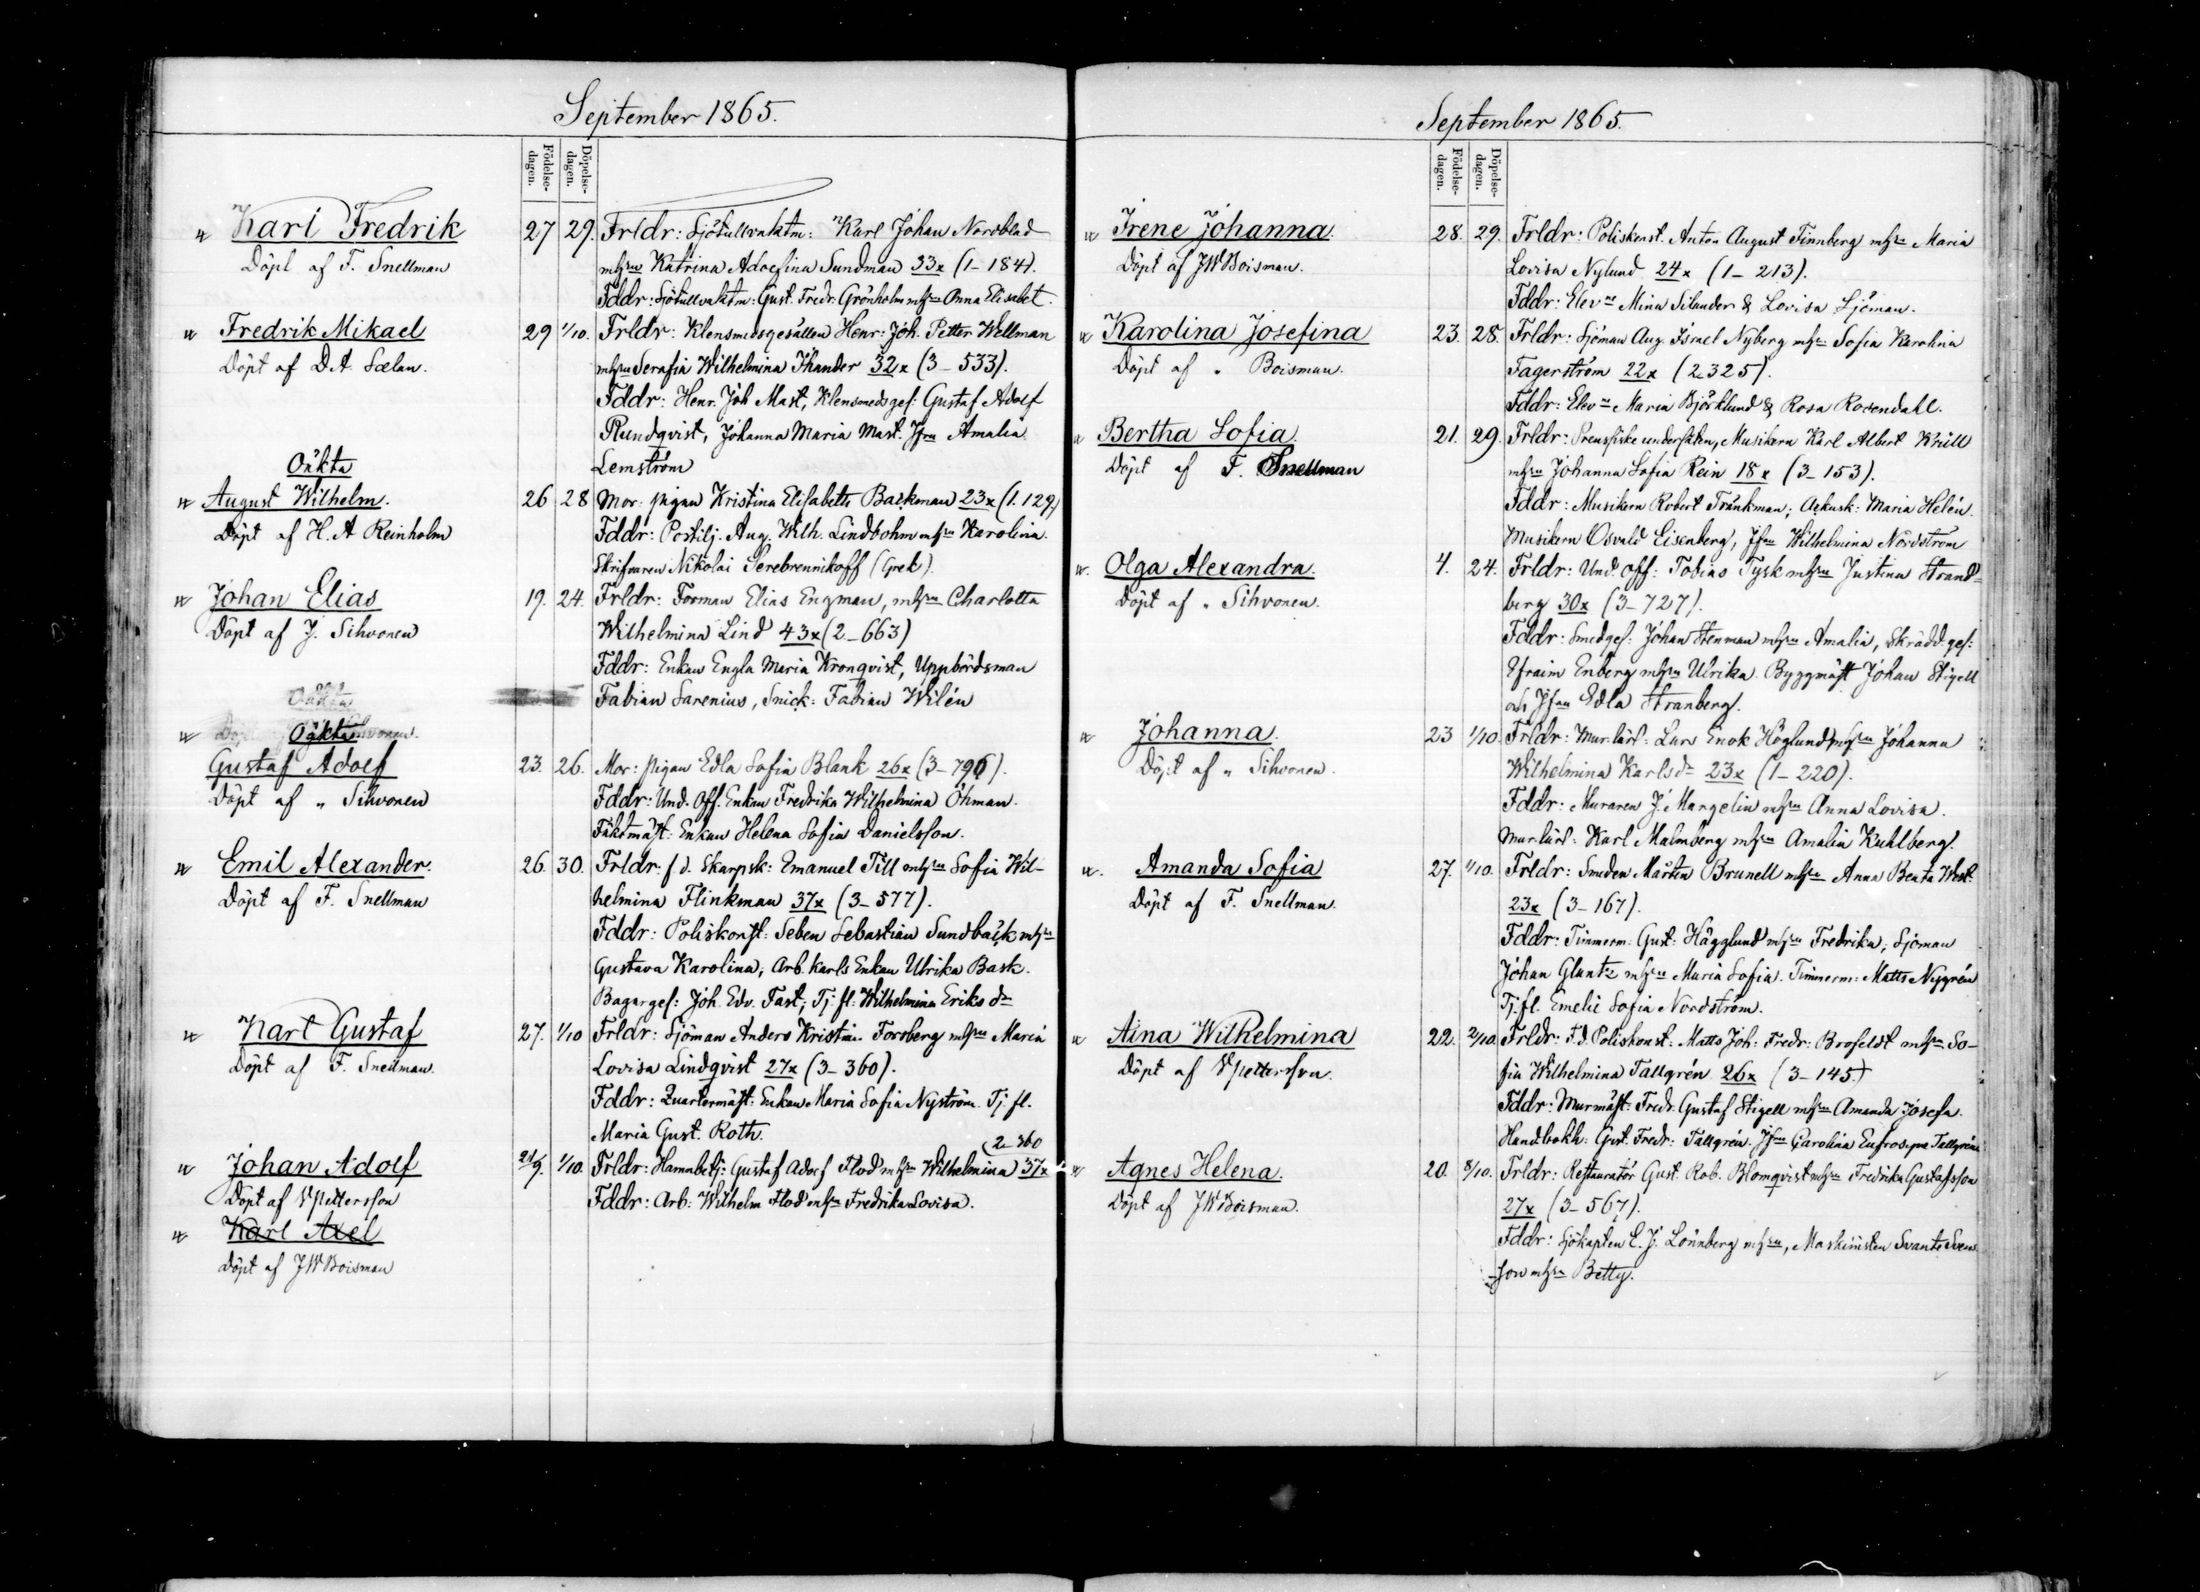 September 1865.
Födelse-
dagen.
Döpelse-
dagen.
Karl Fredrik
Döpt af F. Snellman
27 29. Frldr: Sjötullvaktm: Karl Johan Nordblad
mhSu Katrina Adolfina Sundman 33x (1-184).
Fddr: Sjötullvaktm: Gust. Fredr. Grönholm mhSu Anna Elisabet.
Fredrik Mikael
Döpt af D A Sælan.
29 1/10. Frldr: Klensmedsgesällen Henr: Joh. Petter Wellman
mhSu Serafia Wilhelmina Thander 32x (3-533).
Fddr: Henr. Joh Mast, Klensmedsges: Gustaf Adolf
Rundqvist, Johanna Maria Mast. Jfru Amalia
Lemström
Oäkta
August Wilhelm.
Döpt af H. A Reinholm
26 28 Mor: pigan Kristina Elisabeth Backman 23x (1.129.)
Fddr: Postilj. Aug. Wilh. Lindbohm mhSu Karolina.
Skrifvaren Nikolai Serebrennikoff (Grek).
Johan Elias
Döpt af J. Sihvonen
19. 24. Frldr: Forman Elias Engman, mhSu Charlotta
Wilhelmina Lind 43x (2-663)
Fddr: Enkan Engla Maria Kronqvist, Uppbördsman
Fabian Sarenius, Snick: Fabian Wilén
Oäkta
Gustaf Adolf
Döpt af " Sihvonen
23. 26. Mor: pigan Edla Sofia Blank 26x (3-796).
Fddr: Und. Off. Enkan Fredrika Wilhelmina Öhman.
Fäktmäst: Enkan Helena Sofia Danielsson.
Emil Alexander.
Döpt af F. Snellman
26. 30. Frldr: f.d. Skarpsk: Emanuel Till mhSu Sofia Wil-
helmina Flinkman 37x (3-577).
Fddr: Poliskonst: Seben Sebastian Sundbäck mhSu
Gustava Karolina, Arb. Karls Enkan Ulrika Bask.
Bagarges: Joh. Edv. Fast, Tj. fl. Wilhelmina Eriksdr
Karl Gustaf
Döpt af F. Snellman.
27. 1/10 Frldr: Sjöman Anders Kristian Forsberg mhSu Maria
Lovisa Lindqvist 27x (3-360).
Fddr: Quartermäst: Enkan Maria Sofia Nyström. Tj. fl.
Maria Gust. Roth.
Johan Adolf
Döpt af V Pettersson
21/9. 1/10. Frldr: Hamnbetj: Gustaf Adolf Flod mhSu Wilhelmina 37x
2-360
Fddr: Arb: Wilhelm Flod mhSu Fredrika Lovisa.
Karl Axel
Döpt af J W Boisman
September 1865.
Födelse-
dagen.
Döpelse-
dagen.
Irene Johanna.
Döpt af J W Boisman.
28. 29. Frldr: Poliskonst. Anton August Finnberg mhSu Maria
Lovisa Nylund 24x (1-213).
Fddr: Elevne Mina Silander & Lovisa Sjöman.
Karolina Josefina
Döpt af " Boisman.
23. 28. Frldr: Sjöman Aug. Israel Nyberg mhSu Sofia Karolina
Fagerström 22x (2-325).
Fddr: Elevne Maria Björklund & Rosa Rosendahl.
Bertha Sofia
Döpt af F. Snellman
21. 29. Frldr: Preussiske undersåten, Musikern Karl Albert Krüll
mhSu Johanna Sofia Rein 18x (3-153).
Fddr: Musikern Robert Tränkman, Ackusk: Maria Helén.
Musikern Osvald Eisenberg, Jfru Wilhelmina Nordström
Olga Alexandra.
Döpt af " Sihvonen.
4. 24. Frldr: Und. Off: Tobias Tysk mhSu Justina Strand-
berg 30x (3-727).
Fddr: Smedges: Johan Stenman mhSu Amalia, Skräddges:
Efraim Enberg mhSu Ulrika. Byggmäst Johan Stigell
Jfru Edla Stranberg.
Johanna.
Döpt af " Sihvonen.
23 1/10. Frldr: Murlärl: Lars Enok Höglund mhSu Johanna
Wilhelmina Karlsdr 23x (1-220).
Fddr: Muraren J. Margelin mhSu Anna Lovisa.
Murlärl: Karl Malmberg mhSu Amalia Kuhlberg.
Amanda Sofia
Döpt af F. Snellman.
27. 1/10. Frldr: Smeden Mårten Brunell mhSu Anna Beata West.
23x (3-167).
Fddr: Timmerm: Gust: Hägglund mhSu Fredrika, Sjöman
Johan Glantz mhSu Maria Sofia. Timmerm: Matts Nygrén
Tj. fl. Emelie Sofia Nordström.
Aina Wilhelmina
Döpt af V Pettersson.
22. 2/10. Frldr: F.d. Poliskonst: Matts Joh: Fredr: Brofeldt mhSu So-
fia Wilhelmina Tallgrén 26x (3-145.)
Fddr: Murmäst: Fredr. Gustaf Stigell mhSu Amanda Josefa.
Handbokh: Gust. Fredr: Tallgrén. Jfru Carolina Eufrosyne Tallgrén
Agnes Helena.
Döpt af J W Boisman.
20. 8/10. Frldr: Restauratör Gust. Rob. Blomqvist mhSu Fredrika Gustafsson
27x (3-567).
Fddr: Sjökapten E. J. Lönnberg mhSu, Maskinisten Svante Svens
son mhSu Betty.